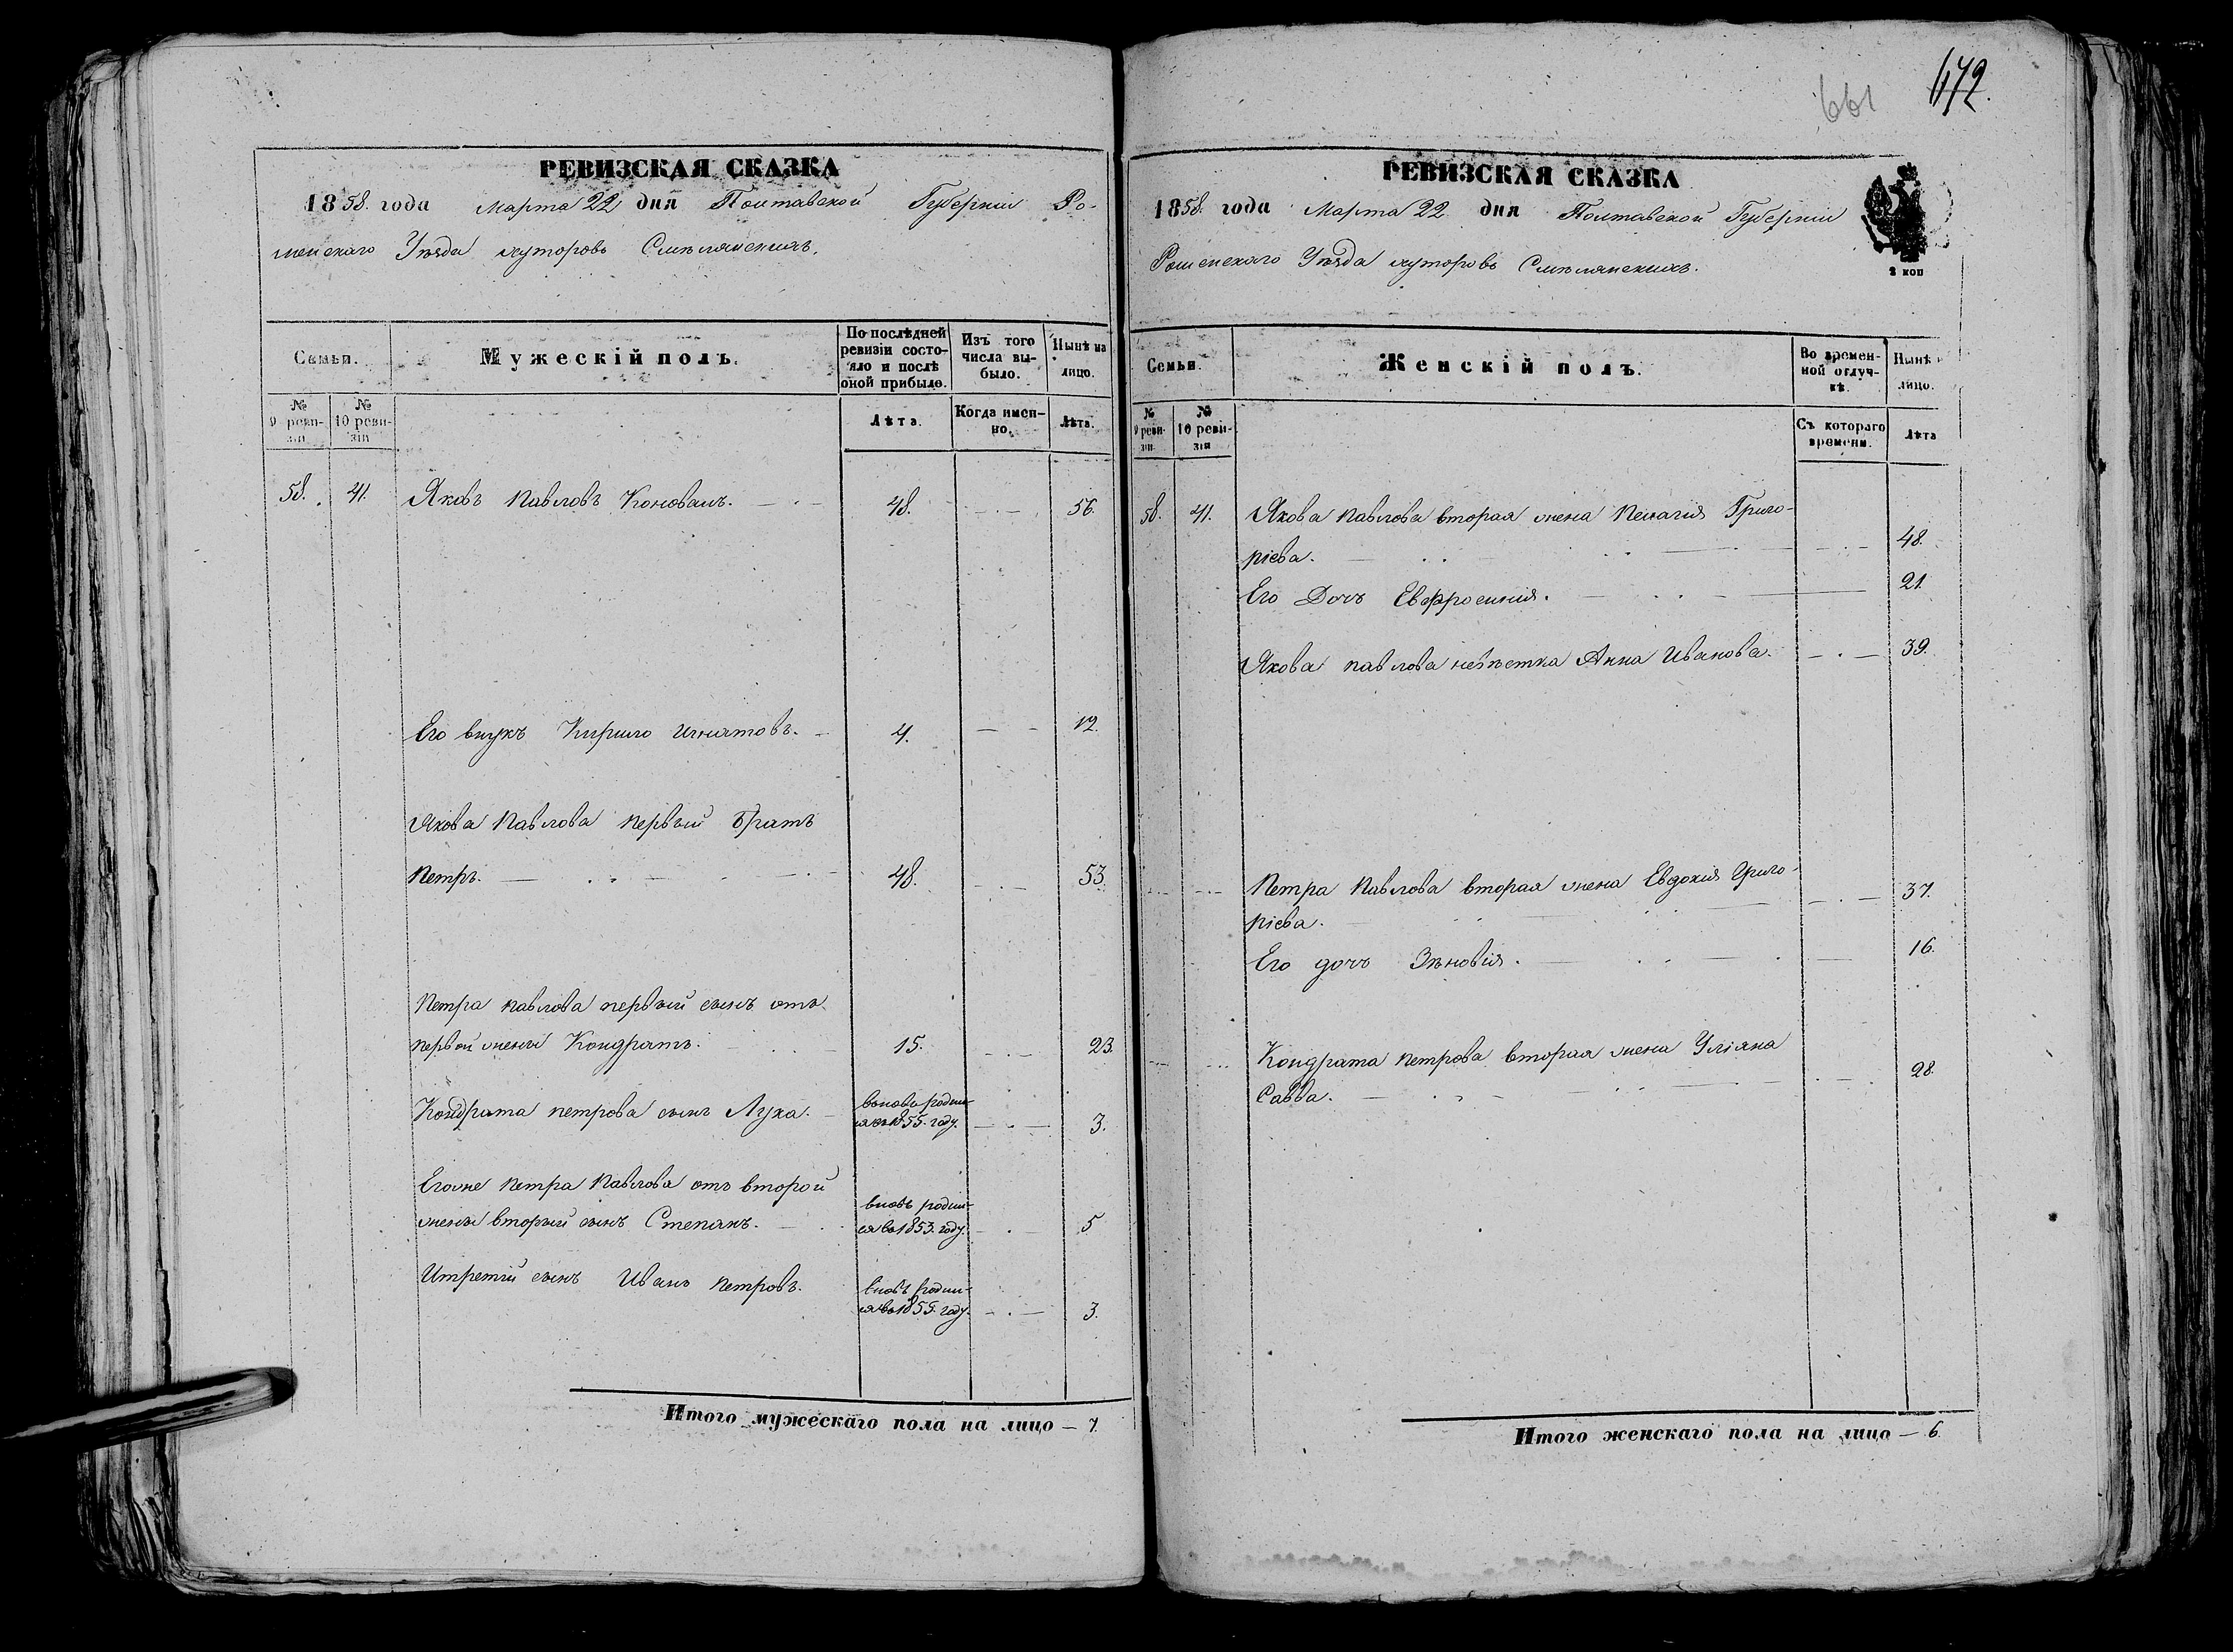 661 672.
РЕВИЗСКАЯ СКАЗКА
1858. года Марта 22 дня Полтавской Губерніи Ро-
менскаго Уѣзда хуторовъ Смѣлянскихъ.
Семьи.
Мужескій полъ.
По послѣдней ревизіи состо-
яло и послѣ
оной прибыло.
Изъ того
числа вы-
было.
Нынѣ на
лицо.
№
9 реви-
зіи
№
10 реви-
зіи
Лѣта.
Когда имен-
но.
Лѣта.
58. 41. Яковъ Павловъ Коновалъ. 48. 56.
Его внукъ Кирило Игнатовъ. 4. 12.
Якова Павлова первый братъ
Петръ. 48. 53.
Петра Павлова первый сынъ отъ
первой жены Кондратъ. 15. 23.
Кондрата Петрова сынъ Лука. вновь родил-
ся въ 1855. году. 3.
Егоже Петра Павлова отъ второй
жены вторый сынъ Степанъ. вновь родил-
ся во 1853. году. 5
Итретій сынъ Иванъ Петровъ. вновь родил-
ся во 1855. году. 3.
Итого мужескаго пола на лицо — 7.
РЕВИЗСКАЯ СКАЗКА
1858. года Марта 22 дня Полтавской Губерніи
Роменскаго Уѣзда хуторовъ Смѣлянскихъ.
2 коп
Семьи.
Женскій полъ.
Во времен-
ной отлуч-
кѣ.
Нынѣ н
лицо.
№
9 реви-
зіи
№
10 реви-
зія
Съ котораго
времени.
Лѣта
58. 41. Якова Павлова вторая жена Пелагія Григо-
ріева. 48.
Его Дочь Евфросинія. 21.
Якова Павлова невѣстка Анна Иванова. 39.
Петра Павлова вторая жена Евдокія Григо-
ріева. 37.
Его дочь Зѣновія. 16.
Кондрата Петрова вторая жена Уліяна
Савва. 28.
Итого женскаго пола на лицо — 6.